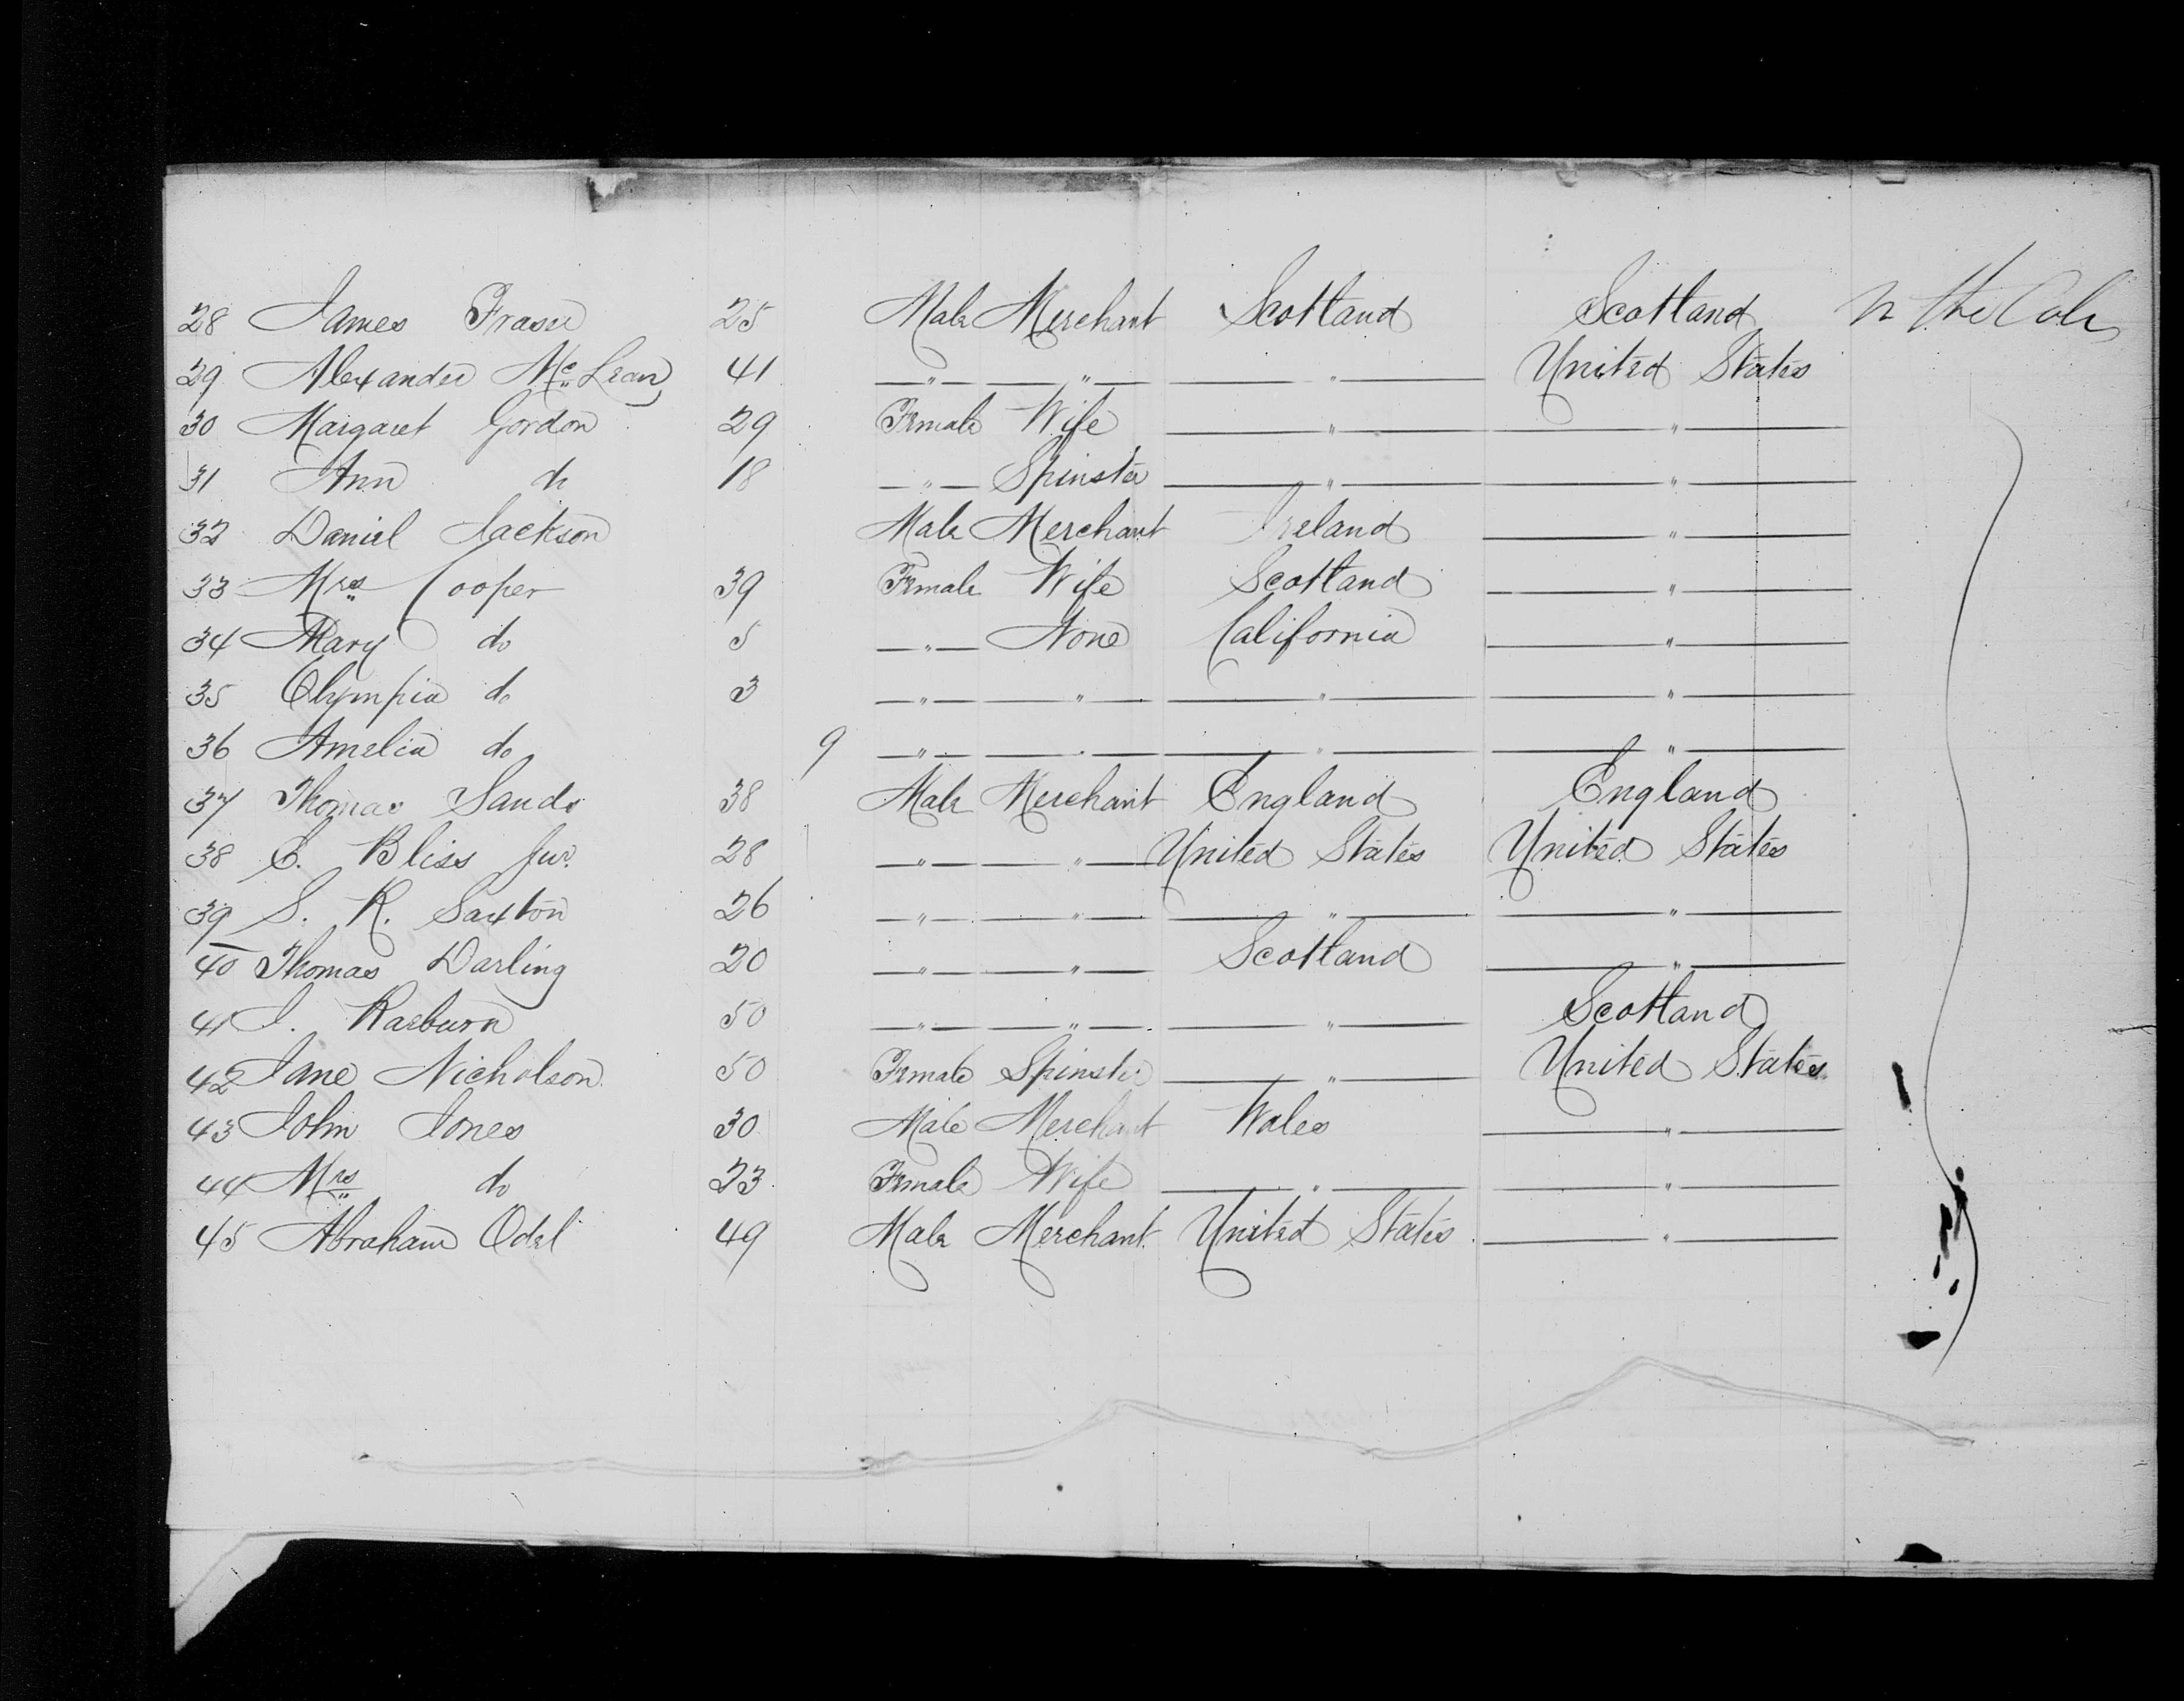 28 James Fraser 25 Male Merchant Scotland Scotland In the Cabin
29 Alexander Mc Lean 41 " " " United States
30 Margaret Gordon 29 Female Wife " "
31 Ann do 18 " Spinster " "
32 Daniel Jackson Male Merchant Ireland "
33 Mrs Cooper 39 Female Wife Scotland "
34 Mary do 5 " None California "
35 Olympia do 3 " " " "
36 Amelia do 9 " " " "
37 Thomas Sands 38 Male Merchant England England
38 C. Bliss Jur. 28 " " United States United States
39 S. R. Saxton 26 " " " "
40 Thomas Darling 20 " " Scotland "
41 J. Raeburn 50 " " " Scotland
42 Jane Nicholson 50 Female Spinster " United States
43 John Jones 30 Male Merchant Wales "
44 Mrs do 23 Female Wife " "
45 Abraham Odel 49 Male Merchant United States "